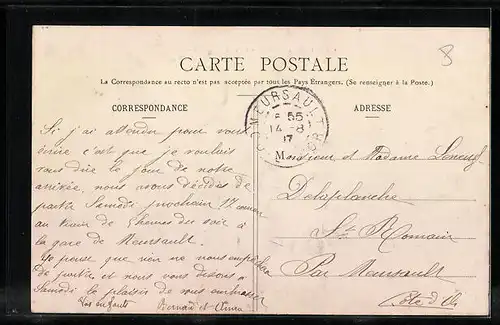 8
CARTE POSTALE
La Correspondance au recto n'est pas acceptée par tout les Pays Étrangers. (Se renseigner à la Poste.)
CORRESPONDANCE
Si j'ai attendu pour vous
écrire c'est que je voulais
vous dire le jour de notre
arrivée, nous nous décidés de
partir Samedi prochain 17 courant
au train de 5 heures du soir à
la gare de Meursault.
Je pense que rien ne nous empêchera
de partir et nous vous disons à
Samedi le plaisir de vous embrasser
Vos enfants
MEURSAULT
55
14-8
17
ADRESSE
Monsieur et Madame
Delaplanche
St Romain
Par Meursault
Côte d'Or